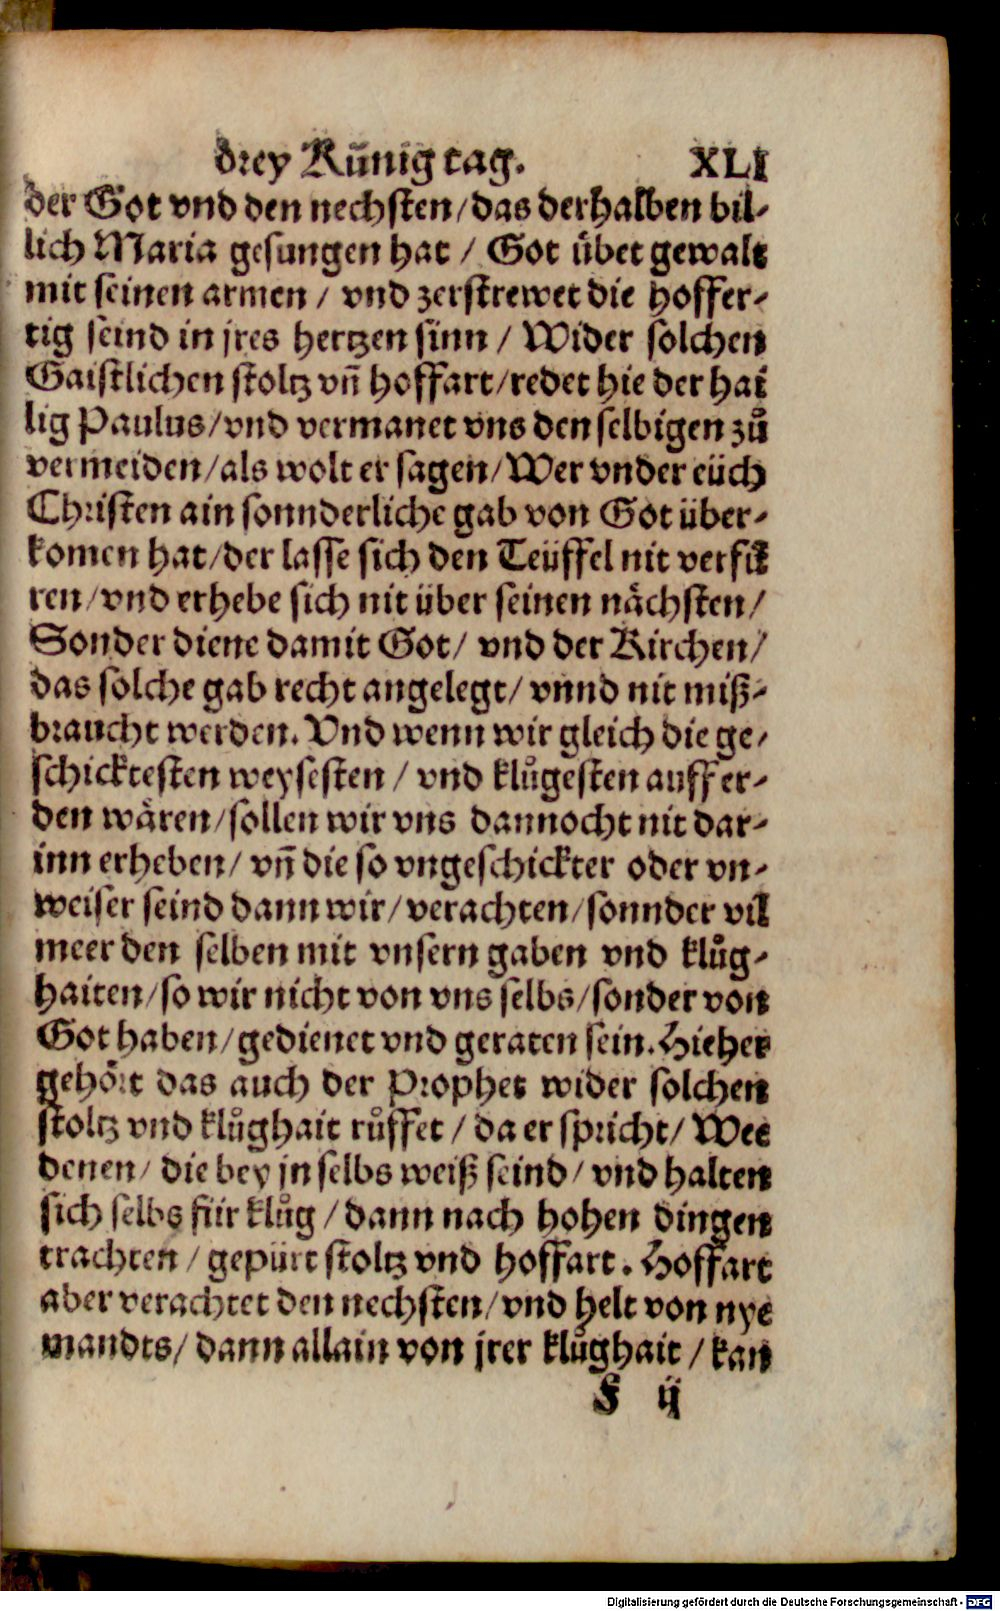 drey Künig tag. XLI
der Got vnd den nechsten/das derhalben bil-
lich Maria gesungen hat / Got übet gewalt
mit seinen armen / vnd zerstrewet die hoffer-
tig seind in jres hertzen sinn / Wider solchen
Gaistlichen stoltz vn̄ hoffart/redet hie der hai
lig Paulus/vnd vermanet vns den selbigen zů
vermeiden/als wolt er sagen/Wer vnder eüch
Christen ain sonnderliche gab von Got über-
komen hat/der lasse sich den Teüffel nit verfü
ren/vnd erhebe sich nit über seinen nächsten/
Sonder diene damit Got/ vnd der Kirchen/
das solche gab recht angelegt/ vnnd nit miß-
braucht werden. Vnd wenn wir gleich die ge-
schicktesten weysesten / vnd klůgesten auff er-
den wären/sollen wir vns dannocht nit dar-
inn erheben/ vn̄ die so vngeschickter oder vn-
weiser seind dann wir/verachten/sonnder vil
meer den selben mit vnsern gaben vnd klůg-
haiten/so wir nicht von vns selbs/sonder von
Got haben/gedienet vnd geraten sein. Hieher
gehört das auch der Prophet wider solchen
stoltz vnd klůghait růffet / da er spricht/ Wee
denen/ die bey jn selbs weiß seind/ vnd halten
sich selbs für klůg / dann nach hohen dingen
trachten / gepürt stoltz vnd hoffart. Hoffart
aber verachtet den nechsten/vnd helt von nye
mandts/ dann allain von jrer klůghait / kan
F ij
Digitalisierung gefördert durch die Deutsche Forschungsgemeinschaft - DFG